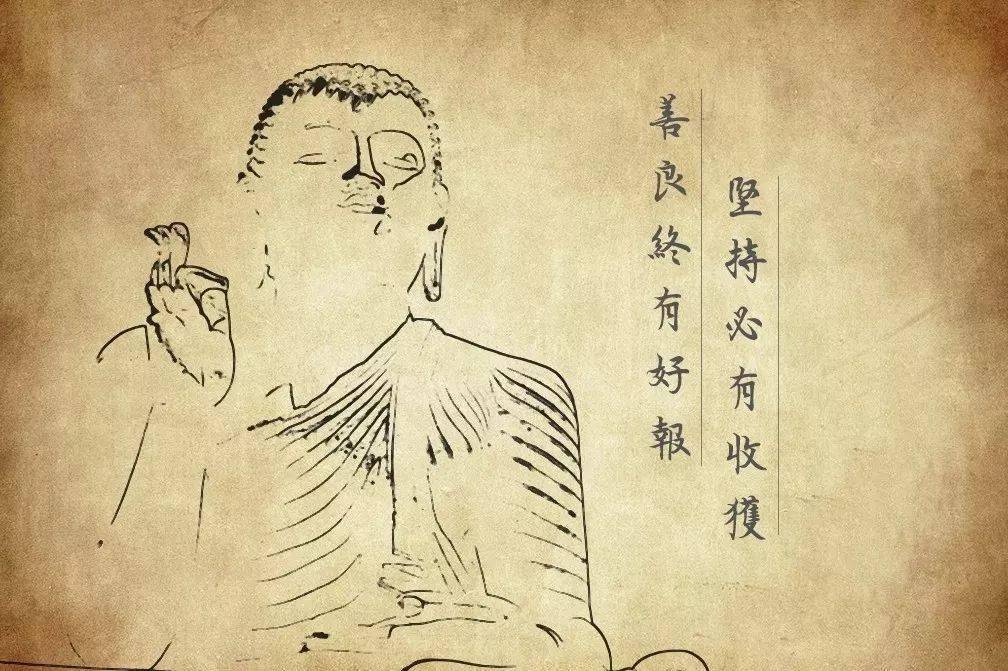 堅持必有收獲
善良終有好報